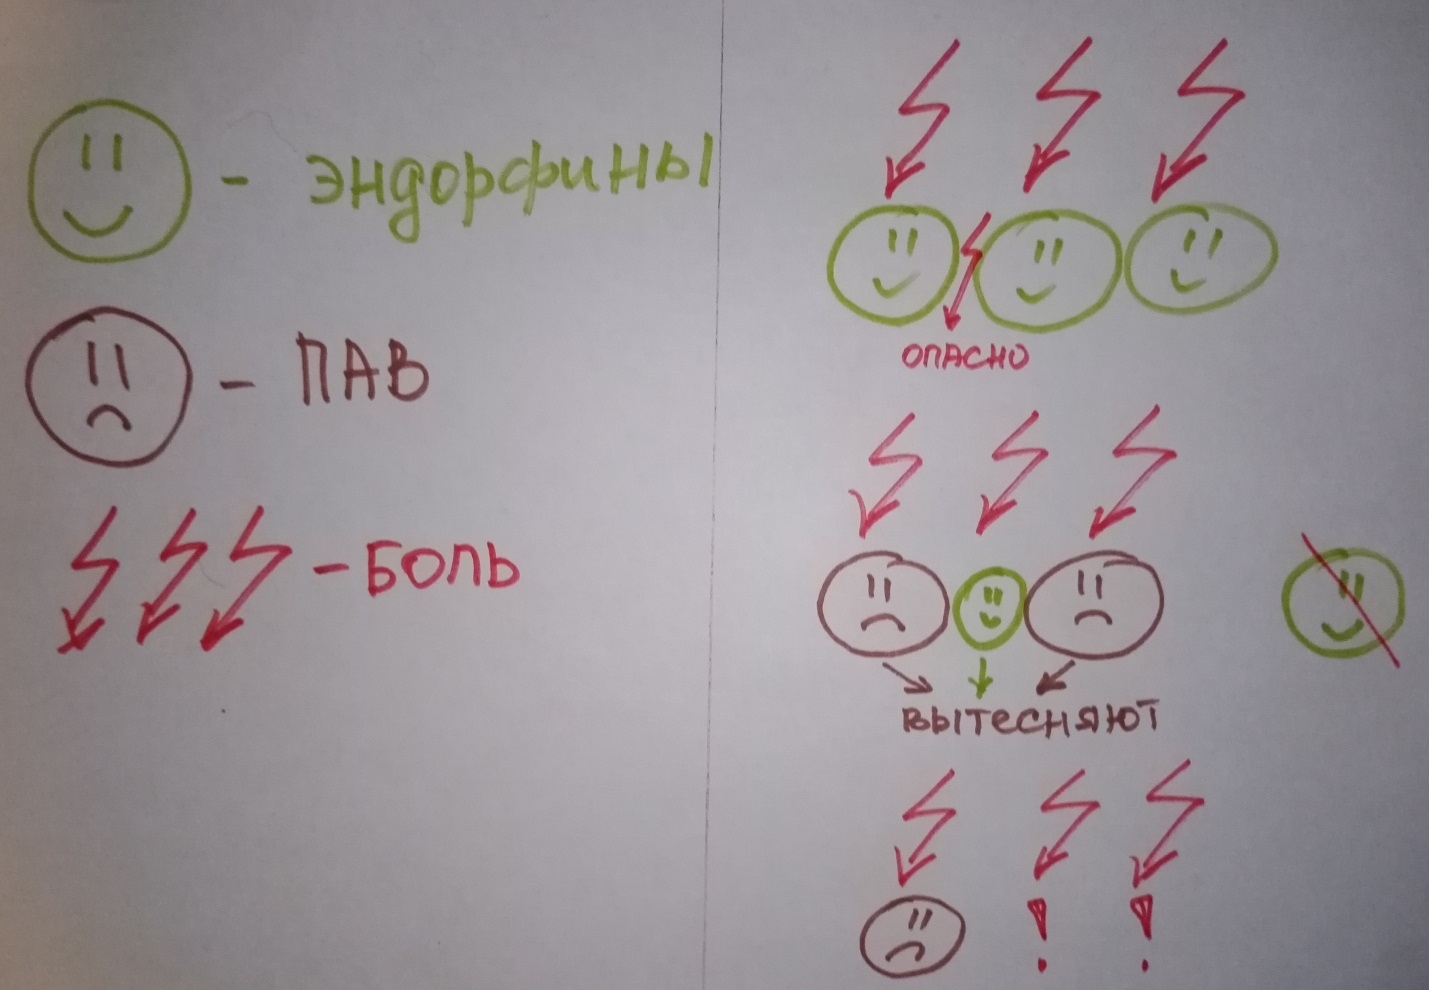 - эндорфины
- ПАВ
- БОЛЬ
ОПАСНО
ВЫТЕСНЯЮТ
! !